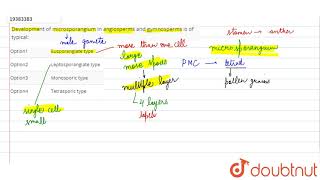 19383383
Development of microsporangium in angiosperms and gymnosperms is of
typical:
male gamete
stamen → anther
Option1 Eusporangiate type
more than one cell
microsporangium
Option2 Leptosporangiate type
large
more spores
PMC → tetrad
Option3 Monosporic type
multiple layer
pollen grains
Option4 Tetrasporic type
4 layers
single cell
small
doubtnut